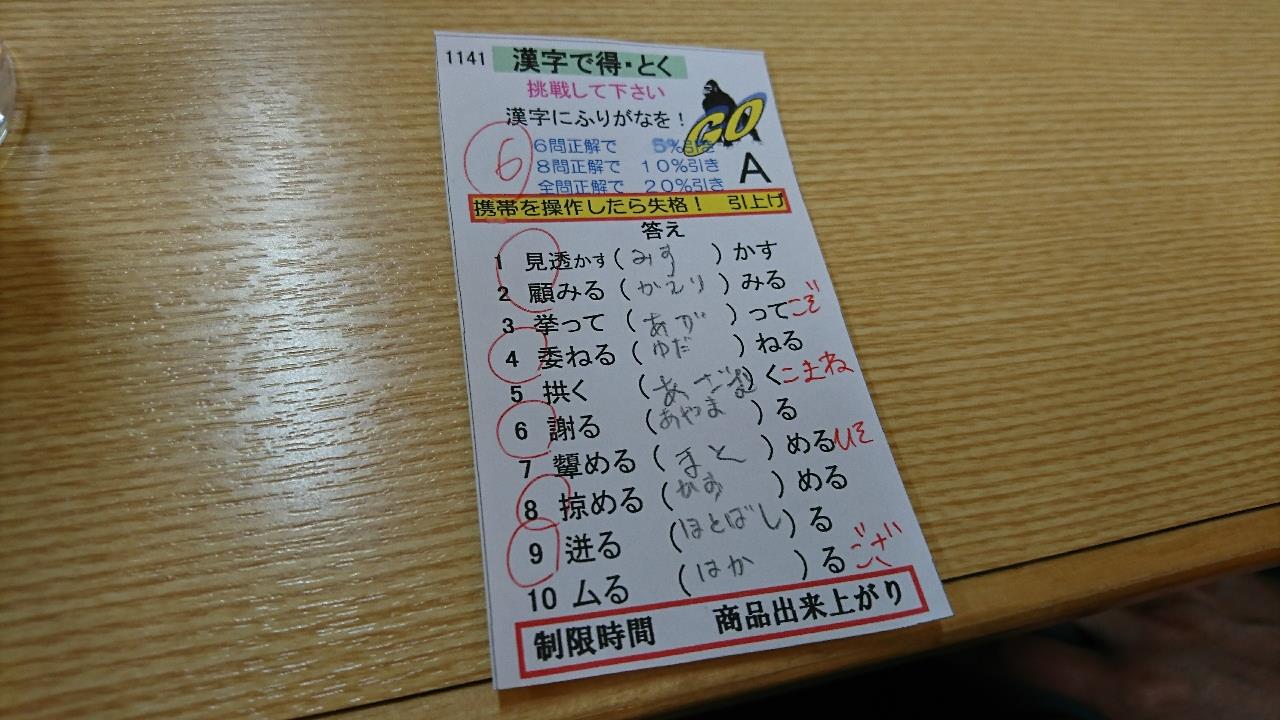 1141 漢字で得・とく
挑戦して下さい
漢字にふりがなを！
GO
6
6問正解で 5%引き
8問正解で 10%引き
全問正解で 20%引き
A
携帯を操作したら失格！ 引上げ
答え
1 見透かす(みす)かす
2 顧みる(かえり)みる
3 挙って(あが)ってこぞ
4 委ねる(ゆだ)ねる
5 拱く(あざむ)くこまね
6 謝る(あやま)る
7 顰める(まと)めるひそ
8 掠める(かす)める
9 迸る(ほとばし)る
10 ムる(はか)るござ
制限時間 商品出来上がり